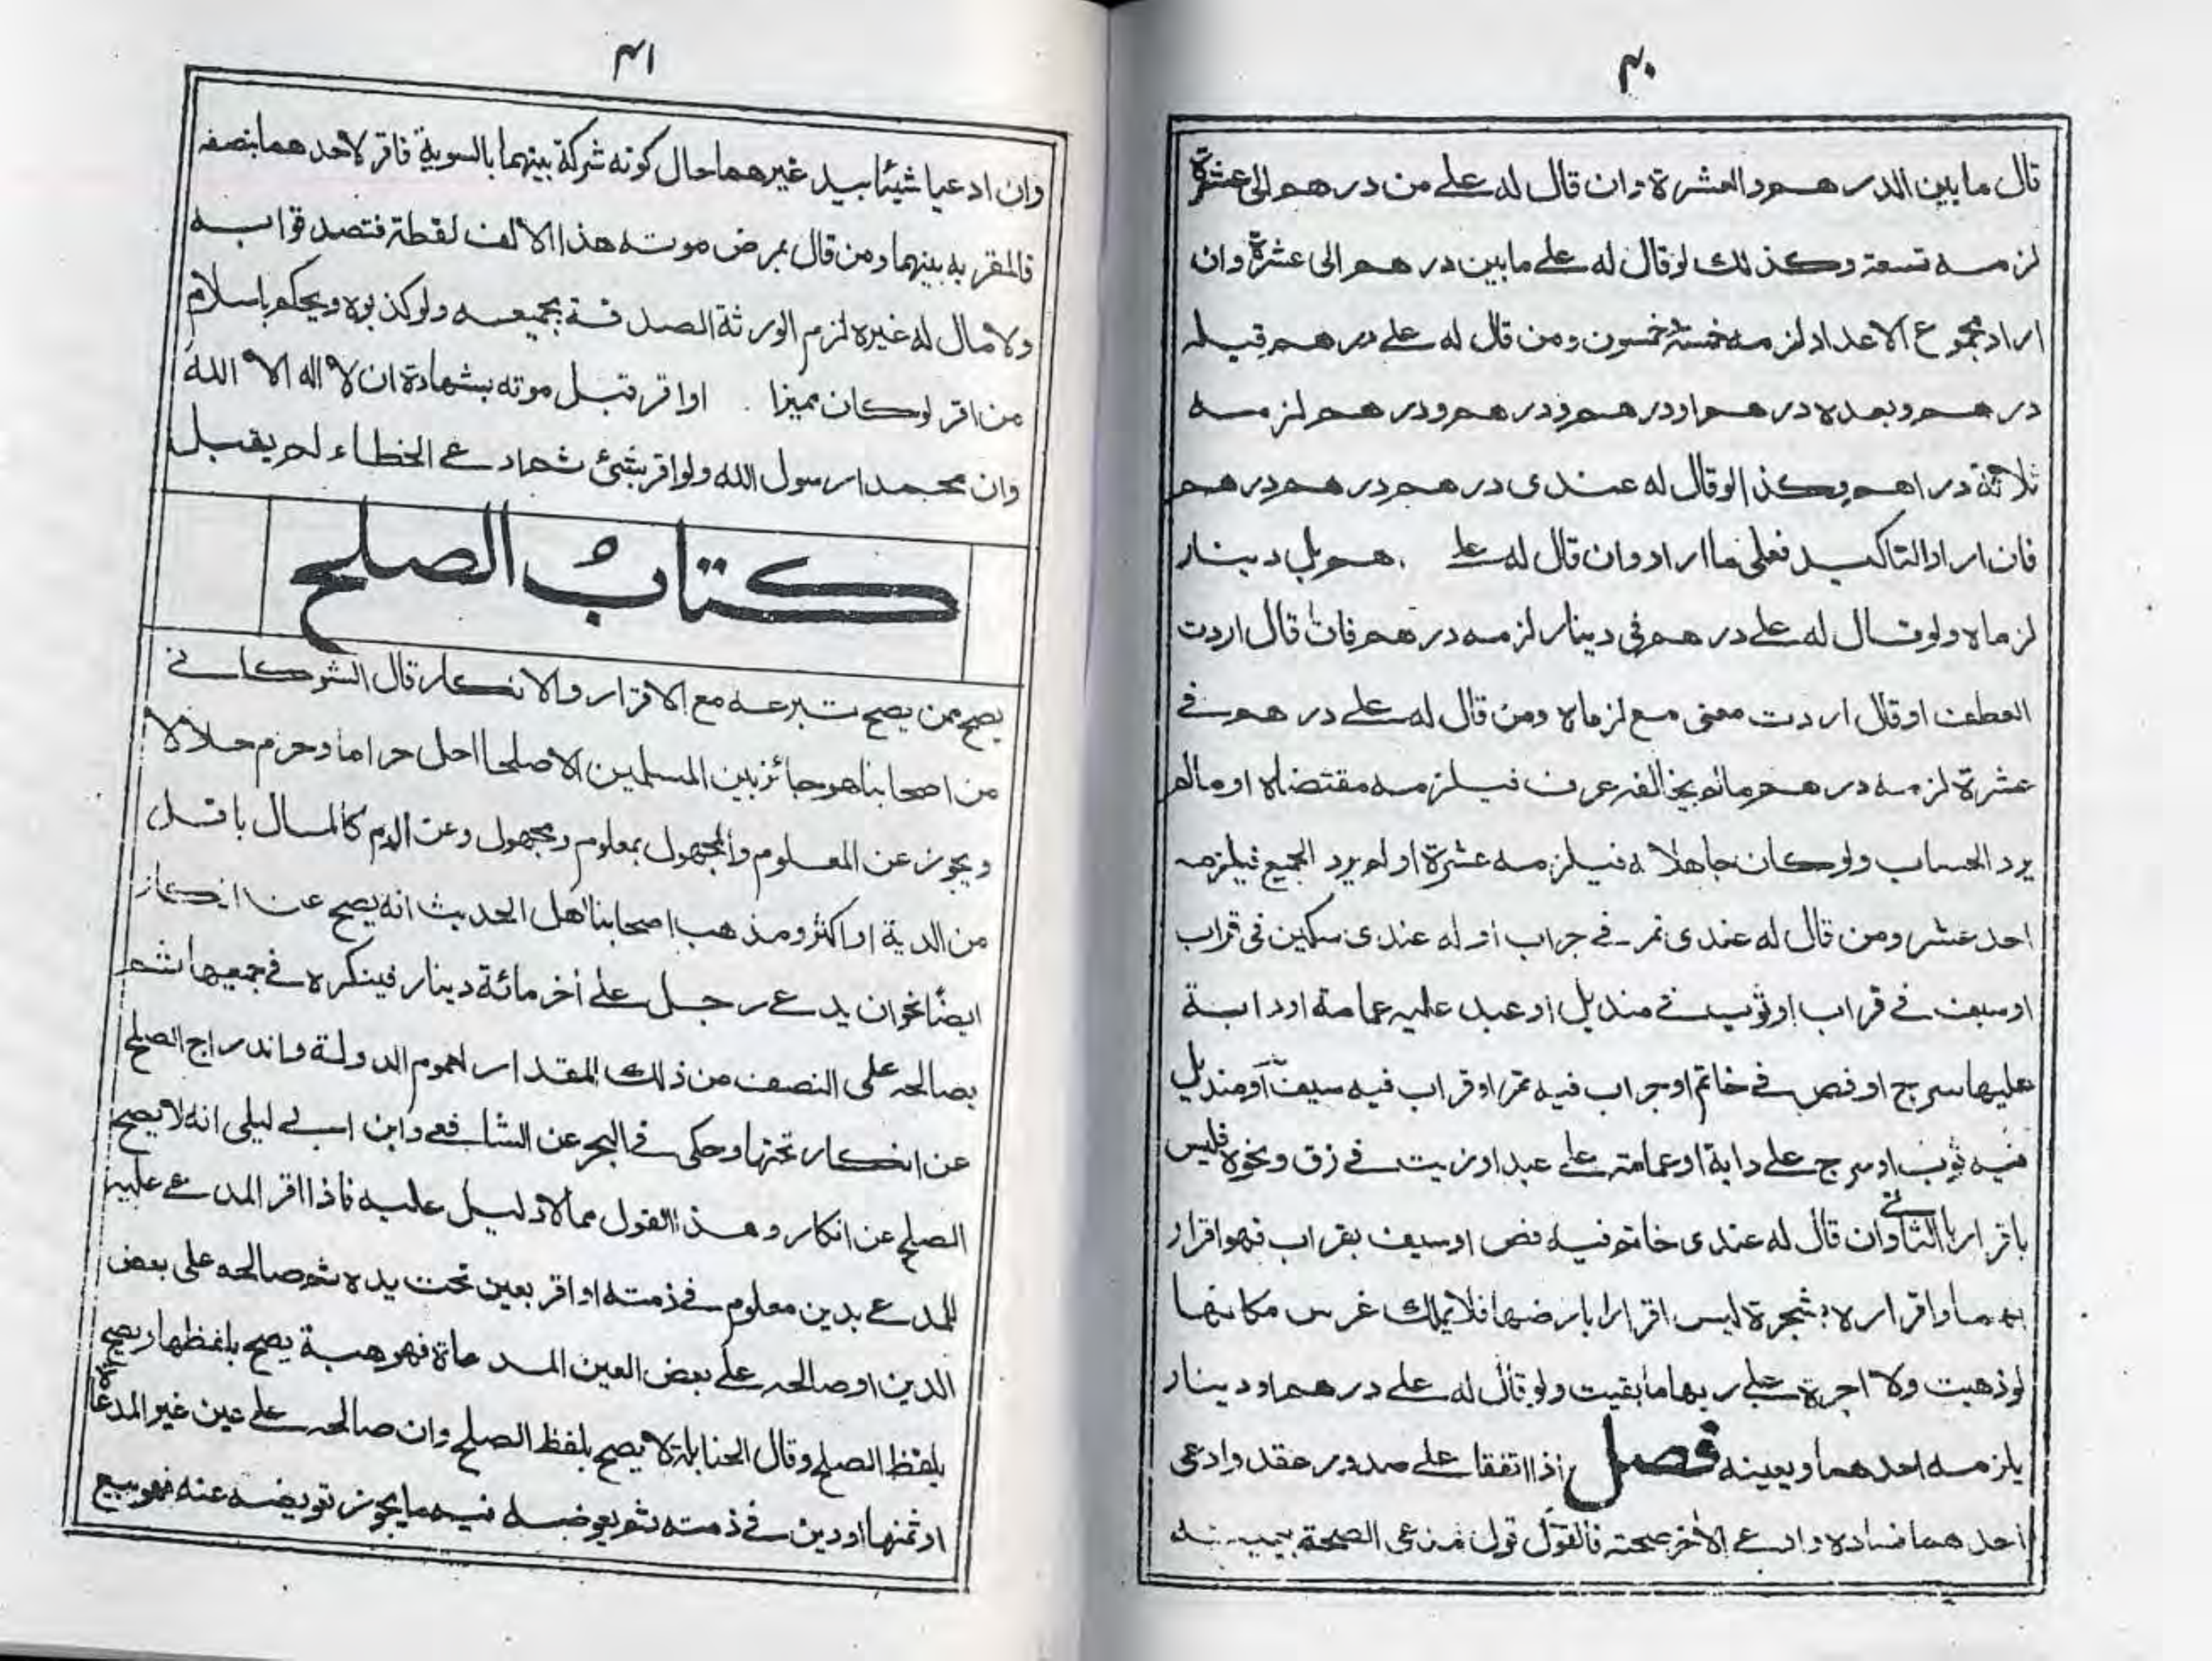 ٤٠
قال ما بين الدرهم والعشرة وان قال له على من درهم الى عشرة
لزمه تسعة وكذلك لو قال له على ما بين درهم الى عشرة وان
اراد مجموع الاعداد لزمه خمسة وخمسون ومن قال له على درهم قبله
درهم وبعده درهم او درهم ودرهم ودرهم لزمه
ثلاثة دراهم وكذا لو قال له عندى درهم درهم درهم
فان اراد التاكيد فعلى ما اراد وان قال له على هم بل دينار
لزماه ولو قال له على درهم فى دينار لزمه درهم فان قال اردت
العطف او قال اردت معنى مع لزماه ومن قال له على درهم فى
عشرة لزمه درهم ما لم يخالفه عرف فيلزمه مقتضاه او ما لم
يرد الحساب ولو كان جاهلا به فيلزمه عشرة او لم يرد الجميع فيلزمه
احد عشر ومن قال له عندى تمر فى جراب او له عندى سكين فى قراب
او سيف فى قراب او ثوب فى منديل او عبد عليه عمامة او دابة
عليها سرج او فص فى خاتم او جراب فيه تمر او قراب فيه سيف او منديل
فيه ثوب او سرج على دابة او عمامة على عبد او زيت فى زق ونحوه فليس
باقرار بالثانى وان قال له عندى خاتم فيه فص او سيف بقراب فهو اقرار
بهما واقراره بشجرة ليس اقرارا بارضها فلا يملك غرس مكانها
لو ذهبت ولا اجرة على ربها ما بقيت ولو قال له على درهم او دينار
يلزمه احدهما ويعينه فصل اذا اتفقا على صدور عقد وادعى
احدهما فساده وادعى الاخر صحته فالقول قول مدعى الصحة بيمينه
٤١
وان ادعيا شيئا بيد غيرهما حال كونه شركة بينهما بالسوية فاقر لاحدهما بنصفه
فالمقر به بينهما ومن قال بمرض موته هذا الالف لقطة فتصدقوا به
ولا مال له غيره لزم الورثة الصدقة بجميعه ولو كذبوه ويحكم باسلام
من اقر لو كان مميزا او اقر قبل موته بشهادة ان لا اله الا الله
وان محمدا رسول الله ولو اقر بشئ ثم ادعى الخطاء لم يقبل
كتاب الصلح
يصح ممن يصح تبرعه مع الاقرار والانكار قال الشوكانى
من اصحابنا هو جائز بين المسلمين الا صلحا احل حراما وحرم حلالا
ويجوز عن المعلوم والمجهول بمعلوم ومجهول وعن الدم كالمال باقل
من الدية او اكثر ومذهب اصحابنا اهل الحديث انه يصح عن انكار
ايضًا نحو ان يدعى رجل على أخر مائة دينار فينكره فى جميعها ثم
يصالحه على النصف من ذلك المقدار لعموم الدولة واندراج الصلح
عن انكار تحتها وحكى فى البحر عن الشافعى وابن ابى ليلى انه لا يصح
الصلح عن انكار وهذا القول مما لا دليل عليه فاذا اقر المدعى عليه
للمدعى بدين معلوم فى ذمته او اقر بعين تحت يده ثم صالحه على بعض
الدين او صالحه على بعض العين المدعاة فهو هبة يصح بلفظها ويصح
بلفظ الصلح وقال الحنابلة لا يصح بلفظ الصلح وان صالحه على عين غير المدعاة
او ثمنها او دين فى ذمته ثم يعوضه فيه ما يجوز تعويضه عنه فهو بيع